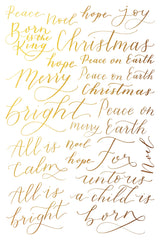 Peace noel hope joy
Born is the King
Christmas
hope Peace on Earth
Merry Peace on Earth
Christmas
bright Peace on
merry Earth
All is noel hope
Calm For Noel
All is unto us
bright a child is
born